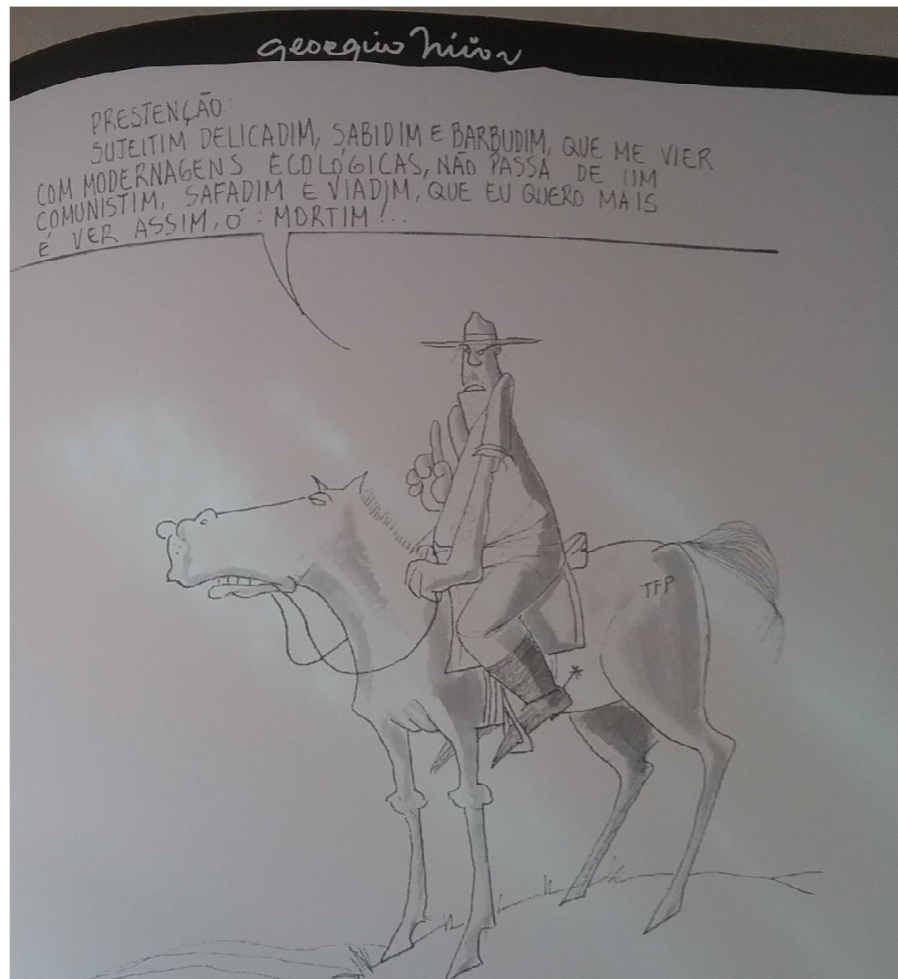 PRESTENÇÃO:
SUJEITIM DELICADIM, SABIDIM E BARBUDIM, QUE ME VIER
COM MODERNAGENS ECOLÓGICAS, NÃO PASSA DE UM
COMUNISTIM, SAFADIM E VIADIM, QUE EU QUERO MAIS
É VER ASSIM, Ó: MORTIM!...
TFP